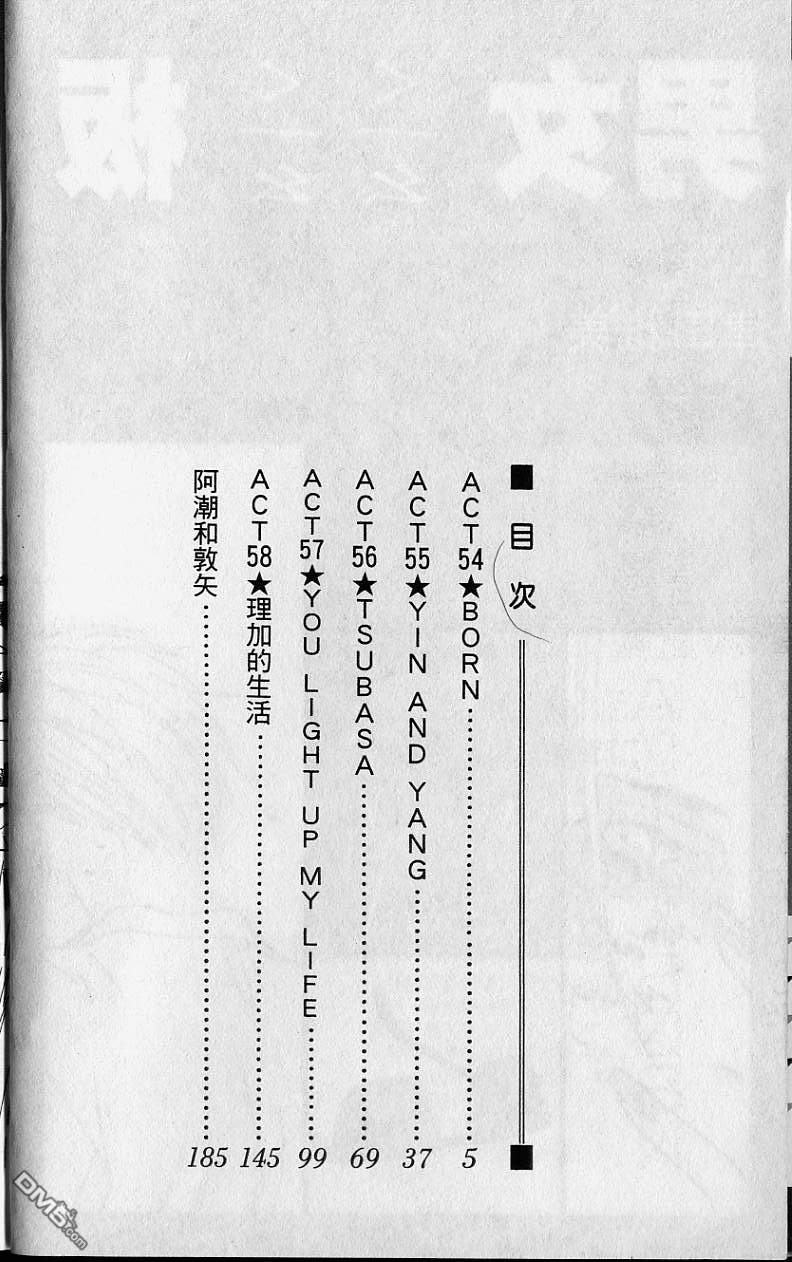 ■目次■
ACT54★BORN……………5
ACT55★YIN AND YANG……………37
ACT56★TSUBASA……………69
ACT57★YOU LIGHT UP MY LIFE……………99
ACT58★理加的生活……………145
阿潮和敦矢……………185
DM5.com